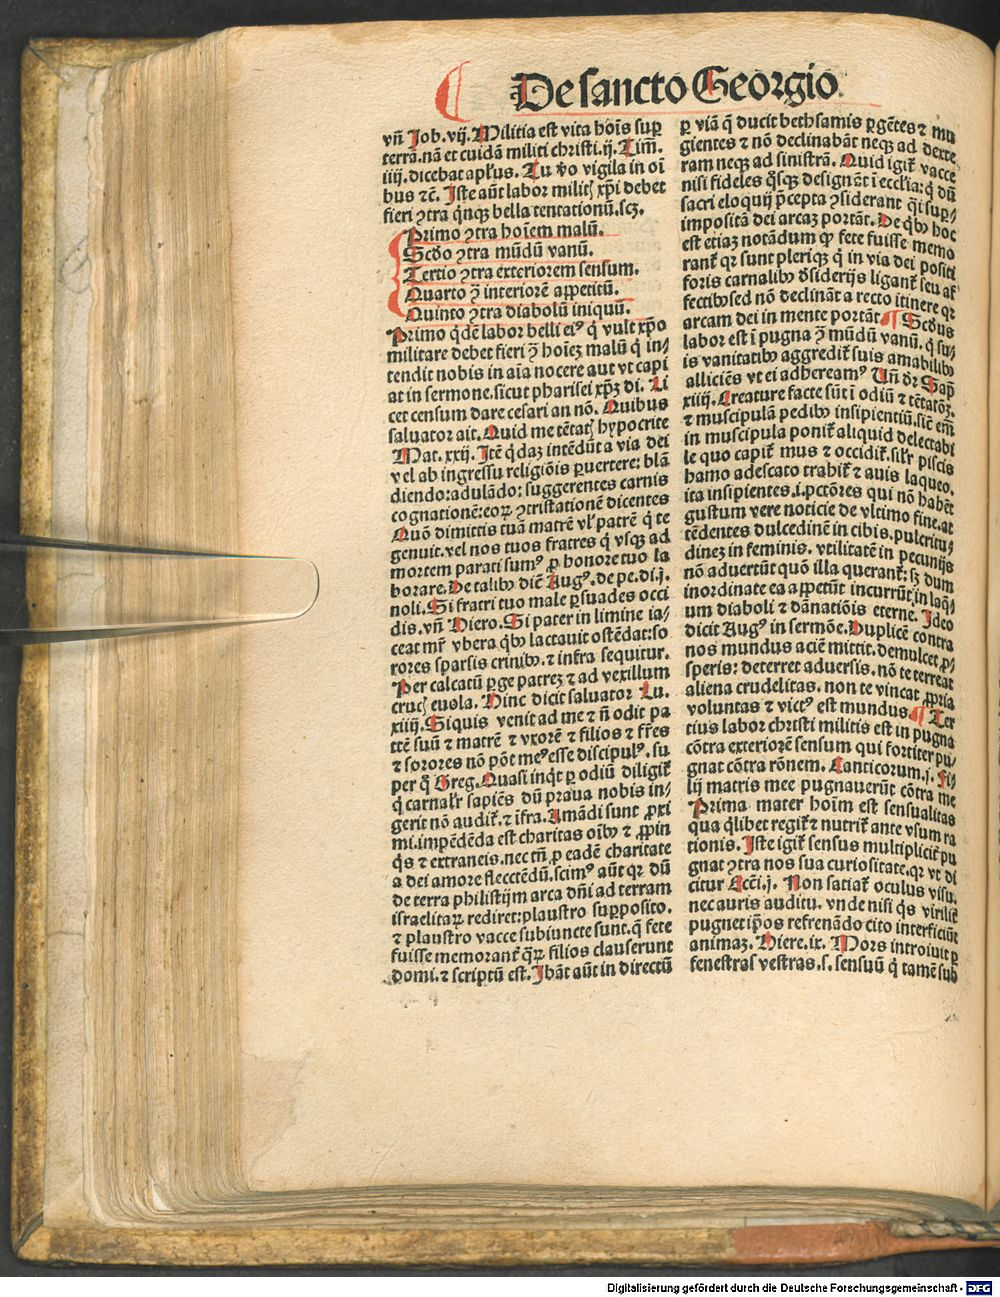 De sancto Georgio.
vñ Job.vij. Militia est vita hoīs sup
terrā.nā et cuidā militi christi.ij.Tim̄.
iiij.dicebat apl'us. Tu ꝟo vigila in oī
bus ⁊c̄. Iste aūt labor militꝭ xp̄i debet
fieri ꝯtra q̄nqꝫ bella tentationū.scꝫ.
Primo ꝯtra hoīem malū.
Scd̄o ꝯtra mūdū vanū.
Tertio ꝯtra exteriorem sensum.
Quarto ꝯ̄ interiorē appetitū.
Quinto ꝯtra diabolū iniquū.
Primo q̇dē labor belli eiꝰ q̇ vult xp̄o
militare debet fieri ꝯ̄ hoīeꝫ malū q̇ in⸗
tendit nobis in aīa nocere aut vt capi
at in sermone.sicut pharisei xp̄ꝫ di. Li
cet censum dare cesari an nō. Quibus
saluator ait. Quid me tētatꝭ hypocrite
Mat.xxij. Itē q̇daꝫ intēdūt a via dei
vel ab ingressu religiōis ꝑuertere: blā
diendo:adulādo: suggerentes carnis
cognationē:eoꝝ ꝯtristationē dicentes
Quō dimittis tuā matrē vl' patrē q̇ te
genuit.vel nos tuos fratres q̇ vsqꝫ ad
mortem parati sumꝰ ꝓ honore tuo la
borare. De talibꝰ dic̄ Augꝰ.de pe.di.j.
noli. Si fratri tuo male ꝑsuades occi
dis.vñ Hiero. Si pater in limine ia⸗
ceat mr̄ vbera q̇bꝰ lactauit ostēdat:so
rores sparsis crinibꝰ.⁊ infra sequitur.
Per calcatū ꝑge patreꝫ ⁊ ad vexillum
crucꝭ euola. Hinc dicit saluator Lu.
xiiij. Siquis venit ad me ⁊ ñ odit pa
trē suū ⁊ matrē ⁊ vxorē ⁊ filios ⁊ fr̄es
⁊ sorores nō pōt meꝰ esse discipulꝰ. su
per q̇ Greg. Quasi inq̇t ꝑ odiū diligit̄
q̇ carnalr̄ sapiēs dū praua nobis in⸗
gerit nō audit̄.⁊ īfra. Amādi sunt ꝓxi
mi.impēdēda est charitas oībꝰ ⁊ ꝓpin
q̇s ⁊ extraneis.nec tñ ꝓ eadē charitate
a dei amore flecctēdū.scimꝰ aūt qꝛ dū
de terra philistijm arca dñi ad terram
israelitaꝝ rediret:plaustro supposito.
⁊ plaustro vacce subiuncte sunt.q̄ fete
fuisse memorant̄ q̄ꝝ filios clauserunt
domi.⁊ scriptū est. Ibāt aūt in directū
ꝑ viā q̄ ducit bethsamis ꝑgētes ⁊ mu
gientes ⁊ nō declinabāt neqꝫ ad dexte
ram neqꝫ ad sinistrā. Quid igit̄ vacce
nisi fideles q̇sqꝫ designēt ī eccl'ia:q̇ dū
sacri eloquij p̄cepta ꝯsiderant q̇si sup⸗
impositā dei arcaꝫ portāt. De q̇bꝰ hoc
est etiaꝫ notādum ꝙ fete fuisse memo
rant̄ qꝛ sunt pleriqꝫ q̇ in via dei positi
foris carnalibꝰ dꝰsiderijs ligant̄ seu af
fectibꝰ sed nō declināt a recto itinere qꝛ
arcam dei in mente portāt ¶ Scd̄us
labor est ī pugna ꝯ̄ mūdū vanū. q̇ su⸗
is vanitatibꝰ aggredit̄ suis amabilibꝰ
alliciēs vt ei adhereamꝰ Uñ dr̄ Sap̄
xiiij. Creature facte sūt ī odiū ⁊ tētatōꝫ.
⁊ muscipulā pedibꝰ insipientiū.sic̄ em̄
in muscipula ponit̄ aliquid delectabi
le quo capit̄ mus ⁊ occidit̄.sil'r piscis
hamo adescato trahit̄ ⁊ auis laqueo.
ita insipientes.i.pctōres qui nō habēt
gustum vere noticie de vltimo fine.at
tēdentes dulcedinē in cibis.pulcritu⸗
dineꝫ in feminis. vtilitatē in pecunijs
nō aduertūt quō illa querant̄: sꝫ dum
inordinate ea appetūt incurrūt in laq̄⸗
um diaboli ⁊ dānatiōis eterne. Ideo
dicit Augꝰ in sermōe. Duplicē contra
nos mundus aciē mittit.demulcet ꝓ⸗
speris: deterret aduersis. nō te terreat
aliena crudelitas. non te vincat ꝓpria
voluntas ⁊ victꝰ est mundus. ¶ Ter
tius labor christi militis est in pugna
cōtra exteriorē sensum qui fortiter pu⸗
gnat cōtra rōnem. Canticorum.j. Fi⸗
lij matris mee pugnauerūt cōtra me
Prima mater hoīm est sensualitas
qua q̇libet regit̄ ⁊ nutrit̄ ante vsum ra
tionis. Iste igit̄ sensus multiplicit̄ pu
gnat ꝯtra nos sua curiositate.qꝛ vt di
citur Ecc̄i.j. Non satiat̄ oculus visu.
nec auris auditu. vnde nisi q̇s virilit̄
pugnet ip̄os refrenādo cito interficiūt
animaꝫ. Hiere.ix. Mors introiuit ꝑ
fenestras vestras.s.sensuū q̇ tamē sub
Digitalisierung gefördert durch die Deutsche Forschungsgemeinschaft - DFG